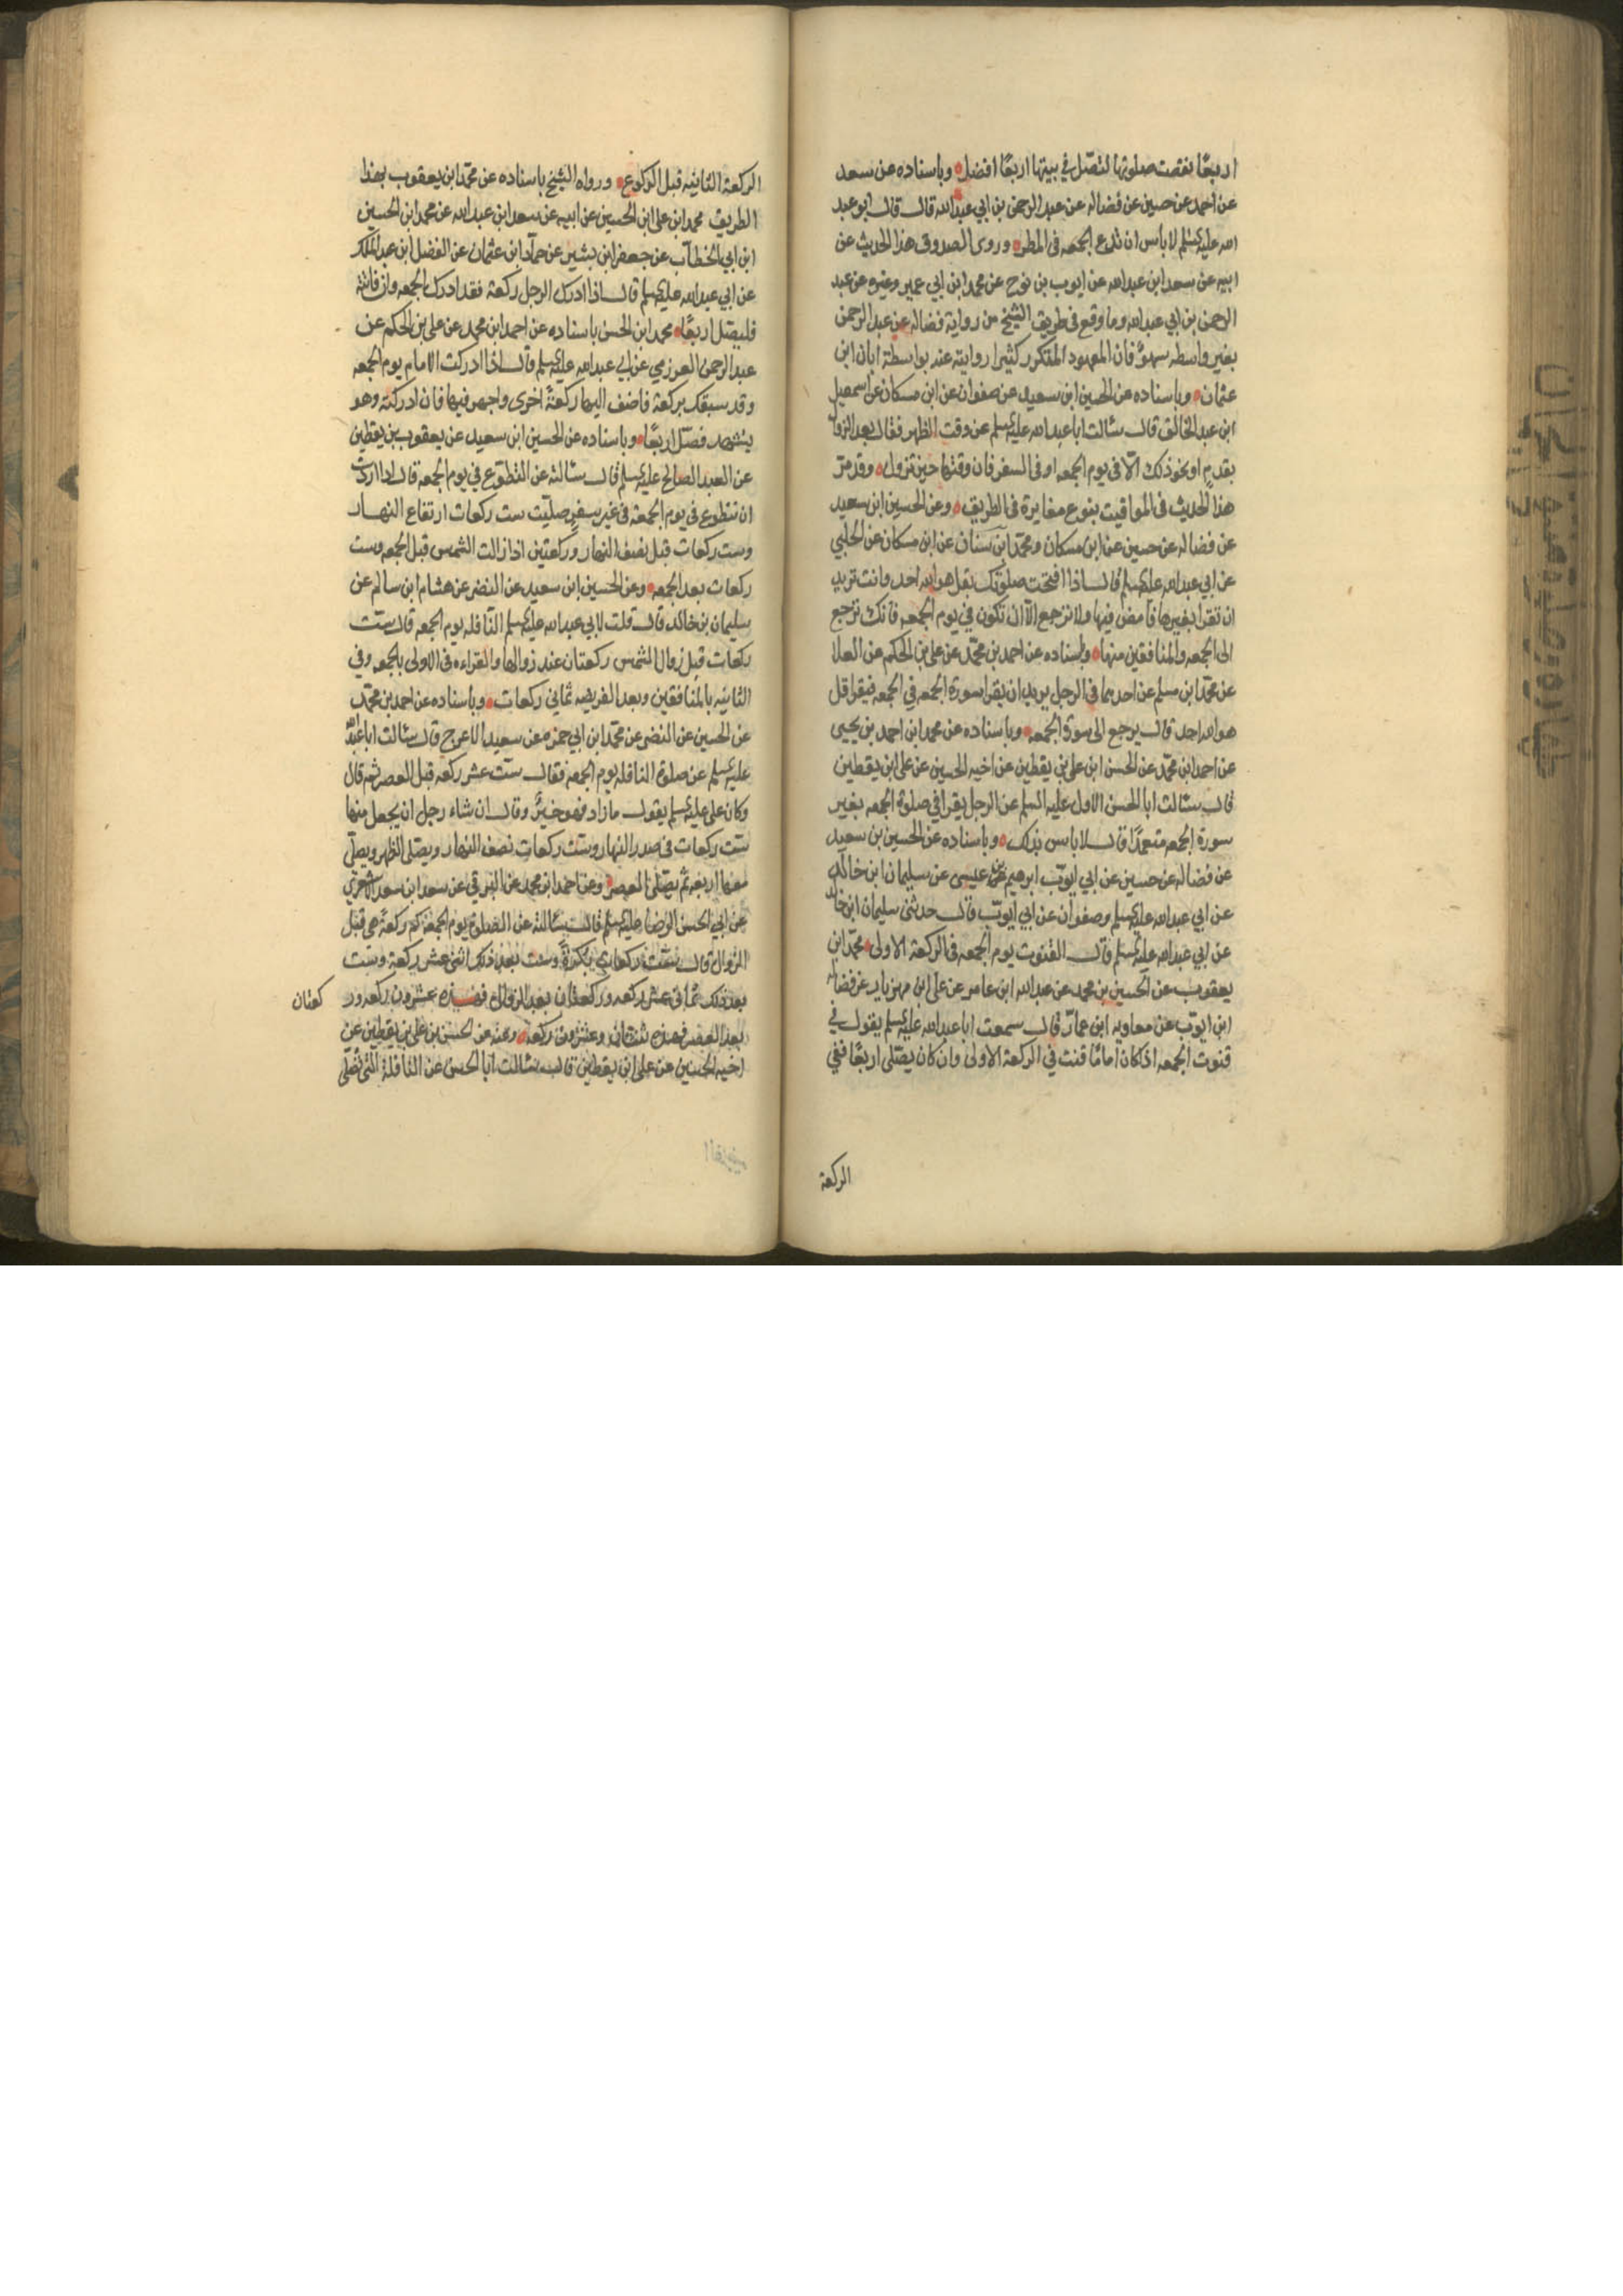 اربعًا نقصت صلوتها لتصلّ في بيتها اربعًا افضل وباسناده عن سعد
عن احمد عن حسين عن فضاله عن عبد الرحمن بن ابي عبد الله قال قال ابو عبد
الله عليه السلم لا باس ان تدع الجمعه في المطر وروى الصدوق هذا الحديث عن
ابيه عن سعد ابن عبد الله عن ايوب بن نوح عن محمد ابن ابي عمير وغيره عن عبد
الرحمن بن ابي عبد الله وما وقع في طريق الشيخ من رواية فضاله عن عبد الرحمن
بغير واسطه سهوٌ فان المعهود المتكرر كثيرا روايته عنه بواسطة ابان ابن
عثمان وباسناده عن الحسين ابن سعيد عن صفوان عن ابن مسكان عن اسمعيل
ابن عبد الخالق قال سئالت ابا عبد الله عليه السلم عن وقت الظهر فقال بعد الزوال
بقدمٍ او نحو ذلك الّا في يوم الجمعه او في السفر فان وقتها حين تزول وقد مرّ
هذا الحديث في المواقيت بنوع مغايرة في الطريق وعن الحسين ابن سعيد
عن فضاله عن حسين عن ابن مسكان ومحمّد ابن سنان عن ابن مسكان عن الحلبي
عن ابي عبد الله عليه السلم قال اذا افتتحت صلوتك بقل هو الله احد وانت تريد
ان تقرا بغيرها فامض فيها ولا ترجع الّا ان تكون في يوم الجمعه فانك ترجع
الى الجمعه والمنافقين منها وباسناده عن احمد بن محمّد عن علي بن الحكم عن العلا
عن محمّد ابن مسلم عن احدهما في الرجل يريد ان يقرا سورة الجمعه في الجمعه فيقرا قل
هو الله احد قال يرجع الى سورة الجمعه وباسناده عن محمد ابن احمد بن يحيى
عن احمد ابن محمّد عن الحسن ابن علي بن يقطين عن اخيه الحسين عن علي ابن يقطين
قال سئالت ابا الحسن الاول عليه السلم عن الرجل يقرا في صلوة الجمعه بغير
سورة الجمعه متعمّدًا قال لا باس بذلك وباسناده عن الحسين بن سعيد
عن فضاله عن حسين عن ابي ايوب ابرهيم بن عيسى عن سليمان ابن خالد
عن ابي عبد الله عليه السلم وصفوان عن ابي ايوب قال حدثني سليمان ابن خالد
عن ابي عبد الله عليه السلم قال القنوت يوم الجمعه في الركعة الاولى محمّد ابن
يعقوب عن الحسين بن محمد عن عبد الله ابن عامر عن علي ابن مهزيار عن فضاله
ابن ايوب عن معاويه ابن عمار قال سمعت ابا عبد الله عليه السلم يقول في
قنوت الجمعه اذا كان امامًا قنت في الركعة الاولى وان كان يصلّى اربعًا ففي
الركعة
الركعة الثانيه قبل الركوع ورواه الشيخ باسناده عن محمّد ابن يعقوب بهذا
الطريق محمد ابن علي ابن الحسين عن ابيه عن سعد ابن عبد الله عن محمد ابن الحسين
ابن ابي الخطاب عن جعفر ابن بشير عن حمّاد ابن عثمان عن الفضل ابن عبد الملك
عن ابي عبد الله عليه السلم قال اذا ادرك الرجل ركعة فقد ادرك الجمعه وان فاتته
فليصّل اربعًا محمد ابن الحسن باسناده عن احمد ابن محمد عن علي بن الحكم عن
عبد الرحمن العرزمي عن ابي عبد الله عليه السلم قال اذا ادركت الامام يوم الجمعه
وقد سبقك بركعة فاضف اليها ركعةً اخرى واجهر فيها فان ادركته وهو
يتشهد فصّل اربعًا وباسناده عن الحسين ابن سعيد عن يعقوب بن يقطين
عن العبد الصالح عليه السلم قال سئالته عن التطوّع في يوم الجمعه قال اذا اردت
ان تتطوع في يوم الجمعة في غير سفرٍ صلّيت ست ركعات ارتفاع النهار
وست ركعات قبل نصف النهار وركعتين اذا زالت الشمس قبل الجمعه وست
ركعات بعد الجمعه وعن الحسين ابن سعيد عن النضر عن هشام ابن سالم عن
سليمان بن خالد قال قلت لابي عبد الله عليه السلم النّافله يوم الجمعه قال ستّ
ركعات قبل زوال الشمس ركعتان عند زوالها والقراءه في الاولى بالجمعه وفي
الثانيه بالمنافقين وبعد الفريضه ثماني ركعات وباسناده عن احمد بن محمّد
عن الحسين عن النضر عن محمّد ابن ابي حمزه عن سعيد الاعرج قال سئالت ابا عبد الله
عليه السلم عن صلوة النافله يوم الجمعه فقال ستّ عشر ركعه قبل العصر ثم قال
وكان علي عليه السلم يقول ما زاد فهو خيرٌ وقال ان شاء رجل ان يجعل منها
ستّ ركعات في صدر النهار وستّ ركعات نصف النهار ويصلّى الظهر ويصلّي
معها اربعه ثم يصلّى العصر وعن احمد ابن محمد عن البرقي عن سعد ابن سعد الاشعري
عن ابي الحسن الرضا عليه السلم قال سئالته عن الصلوة يوم الجمعه كم ركعةً هي قبل
الزوال قال ستّ ركعات بكرةً وست بعد ذلك اثنى عشر ركعة وست
بعد ذلك ثماني عشر ركعه وركعتان بعد الزوال فهذه عشرون ركعه ور كعتان
بعد العصر فهذه ثنتان وعشرون ركعه وعنه عن الحسن بن علي بن يقطين عن
اخيه الحسين عن علي ابن يقطين قال سئالت ابا الحسن عن النافلة التى تصلّى